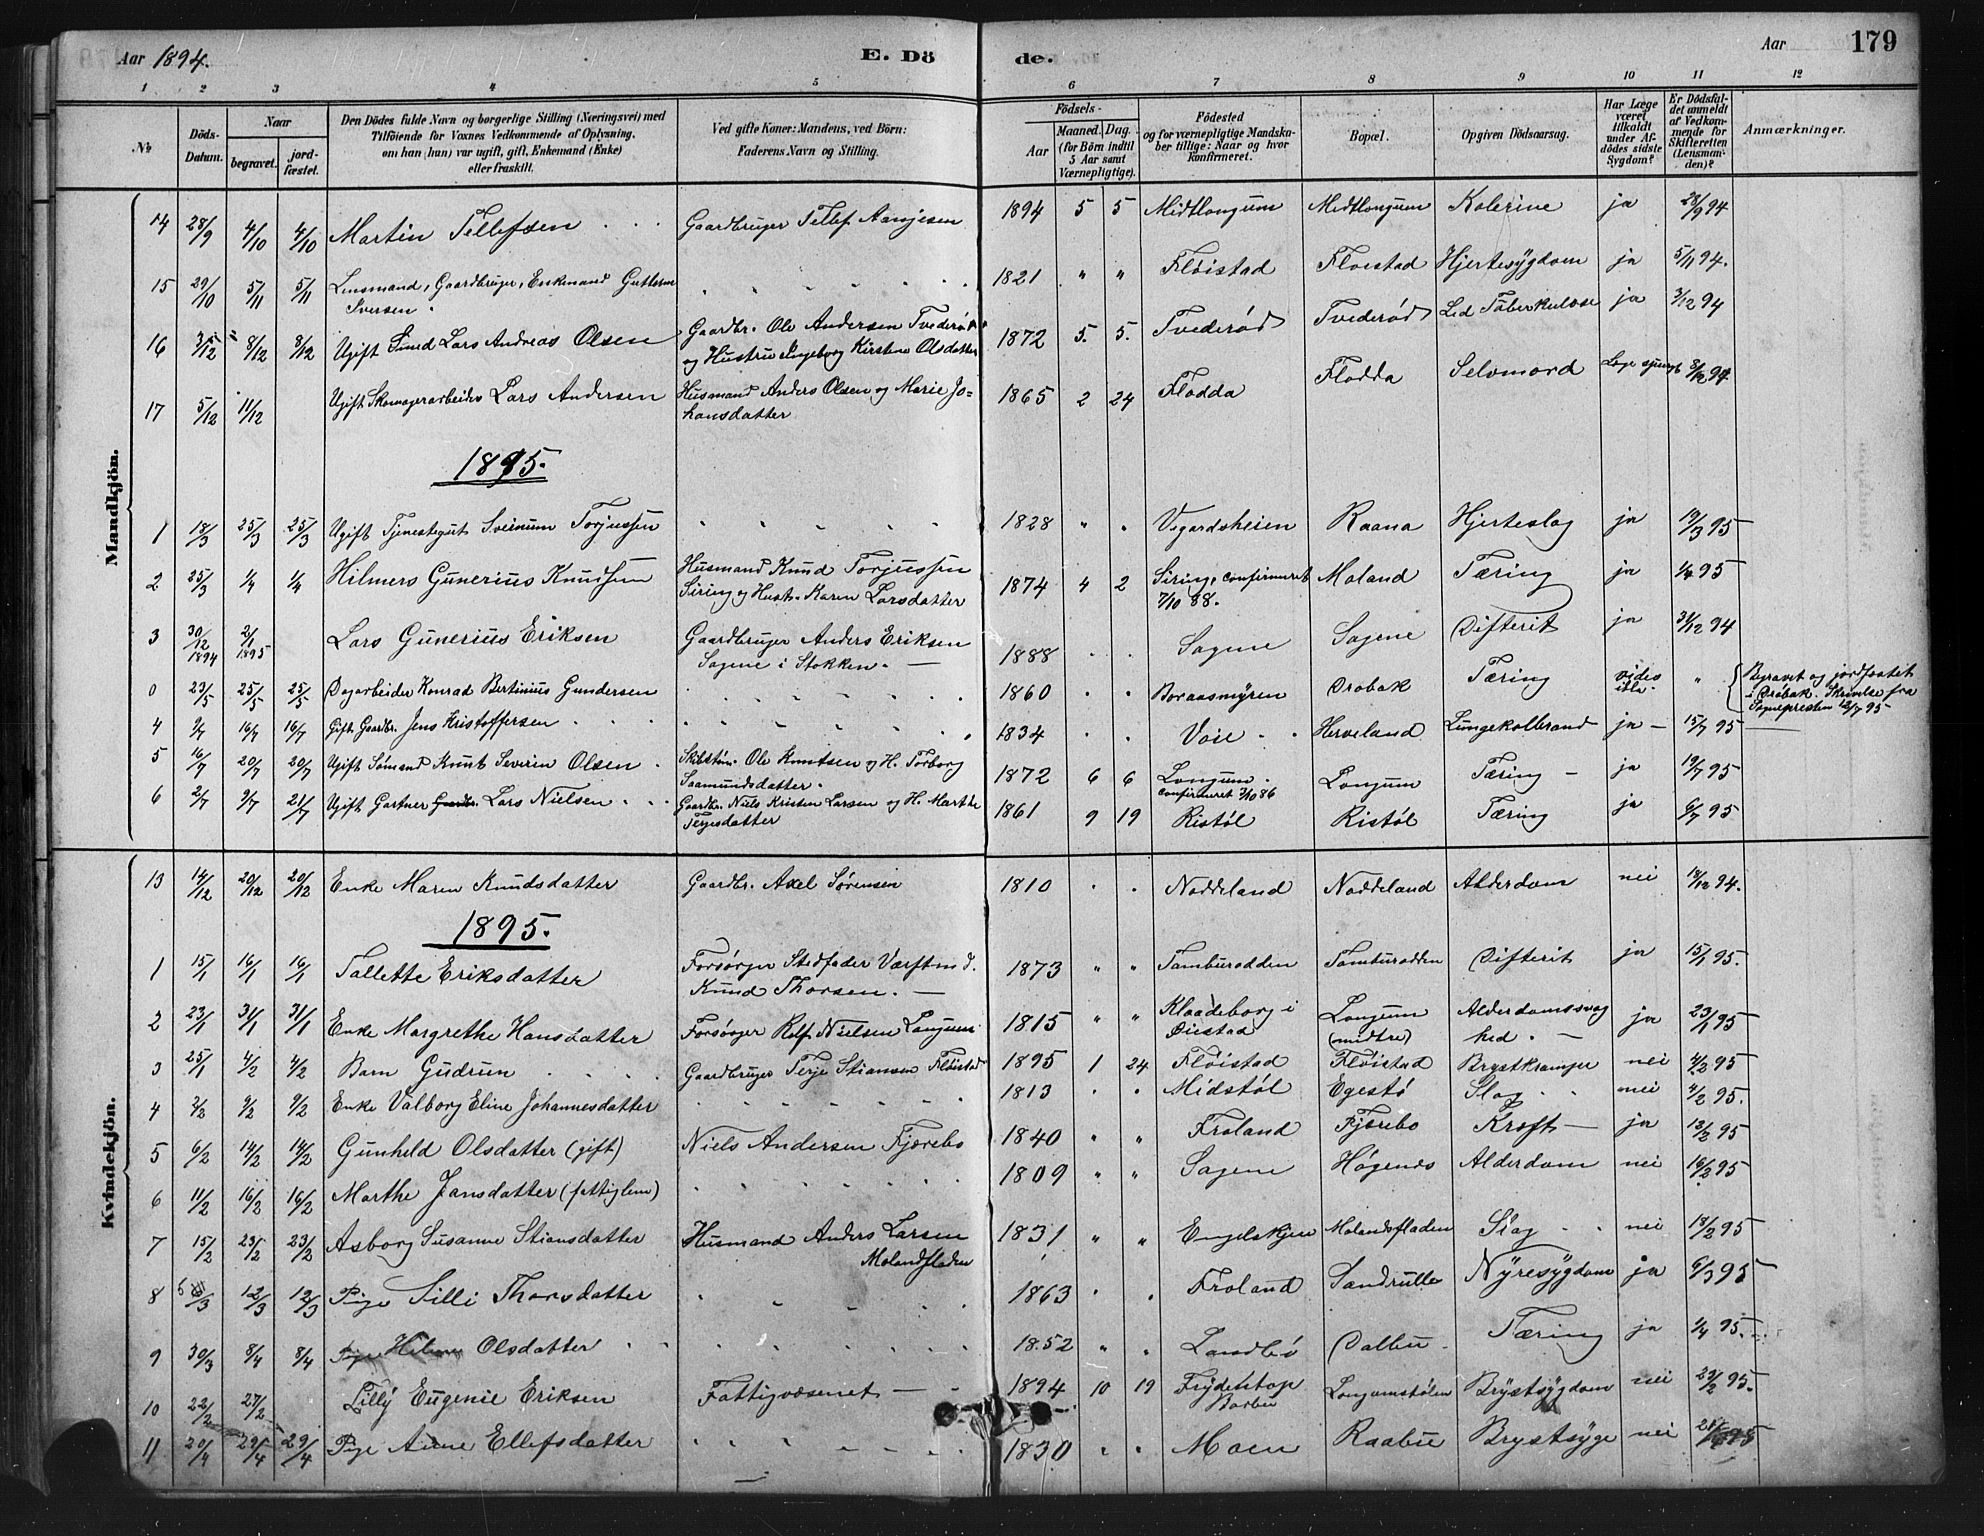 Aar 1894. E. Dö de. Aar 179
1 2 3 4 5 6 7 8 9 10 11 12
№ Döds-Datum. Naar begravet. jordfæstet. Den Dödes fulde Navn og borgerlige Stilling (Næringsvei) med Tilföiende for Voxnes Vedkommende af Oplysning, om han (hun) var ugift, gift, Enkemand (Enke) eller fraskilt. Ved gifte Koner: Mandens, ved Börn: Faderens Navn og Stilling. Födsels- Aar Maaned. Dag. (for Börn indtil 5 Aar samt Værnepligtige). Födested og for værnepligtige Mandskaber tillige: Naar og hvor konfirmeret. Bopæl. Opgiven Dödsaarsag. Har Læge været tilkaldt under Afdödes sidste Sygdom? Er Dödsfaldet anmeldt af Vedkommende for Skifteretten (Lensmanden)? Anmærkninger.
Mandkjön.
14 28/9 4/10 4/10 Martin Tellefsen Gaardbruger Tellef Aanjesen 1894 5 5 Midtlongum Midtlongum Kolerine ja 28/9 94
15 29/10 5/11 5/11 Lensmand, Gaardbruger, Enkemand Guttorm Iversen 1821 " " Fløistad Floistad Hjertesygdom ja 5/11 94.
16 3/12 8/12 8/12 Ugift Smed Lars Andreas Olsen Gaardbr. Ole Andersen Tvederød og Hustru Ingeborg Kirstine Olsdatter 1872 5. 5. Tvederød Tvederød Led Tuberkulose ja 3/12 94
17 5/12 11/12 Ugift Skomagerarbeider Lars Andersen Husmand Anders Olsen og Marie Johansdatter 1865 2 24 Flodda Flodda Selvmord 8/12 94
1895.
1 18/3 25/3 25/3 Ugift Tjenestegut Sveinum Torjussen 1828 " " Vegardsheien Raana Hjerteslag ja 19/3 95
2 25/3 1/4 1/4 Hilmers Gunerius Knudsen Husmand Knud Torjussen Siring og Hust. Karen Larsdatter 1874 4 2 Siring, confirmeret 7/10 88. Moland Tæring ja 1/4 95
3 30/12 1894 2/1 1895 Lars Gunerius Eriksen Gaardbruger Anders Eriksen Sagene i Stokken. 1888 Sagene Sagene Difterit ja 31/12 94
0 23/5 25/5 25/5 Dagarbeider Konrad Bertinius Gundersen 1860 " " Boraasmyren Drøbak Tæring vides ikke. " Begravet og jordfæstet i Drøbak. Skrivelse fra Sognepresten 12/7 95
4 9/7 16/7 16/7 Gift Gaardbr. Jens Kristoffersen 1834 Voie Herveland Lungekolbrand ja 15/7 95
5 16/7 20/7 20/7 Ugift Sømand Knut Severin Olsen Skibstøm. Ole Knutsen og H. Torborg Saamundsdatter. 1872 6 6 Longum. confirmeret 3/10 86 Longum Tæring ja 19/7 95
6 2/7 9/7 21/7 Ugift Gartner Gaardbr. Lars Nielsen Gaardbr. Niels Kristen Larsen og H. Marthe Terjesdatter 1861 9 19 Ristøl Ristøl Tæring ja 6/7 95
Kvindekjön.
13 14/12 20/12 20/12 Enke Maren Knudsdatter Gaardbr. Axel Sørensen 1810 Noddeland Noddeland Alderdom nei 18/12 94.
1895.
1 15/1 16/1 16/1 Tallette Eriksdatter Forsørger Stedfader Værftmd. Knud Thorsen. 1873 " " Tamburodden Tamburodden Difterit ja 15/1 95.
2 23/1 31/1 31/1 Enke Margrethe Hansdatter Forsørger Rolf Nielsen Longum 1815 " " Klaadeborg i Øiestad Longum (midtre) Alderdomssvaghed. ja 23/1 95
3 25/1 4/2 4/2 Barn Gudrun Gaardbruger Terje Stiansen Fløistad 1895 1 24 Fløistad Fløistad Brystkramper nei 4/2 95
4 2/2 9/2 9/2 Enke Valborg Eline Johannesdatter 1813 Midstøl Egestø Slag nei 4/2 95.
5 6/2 14/2 14/2 Gunhild Olsdatter (gift) Niels Andersen Fjærebo 1840 " " Froland Fjærebo Kræft ja 13/2 95
6 11/2 16/2 16/2 Marthe Jansdatter (fattiglem) 1809 " " Sagene Høgenes Alderdom nei 16/2 95
7 15/2 23/2 23/2 Asborg Susanne Stiansdatter Husmand Anders Larsen Molandsfladen 1831 " " Engelskjen Molandsfladen Slag nei 18/2 95
8 6/3 12/3 12/3 Pige Silli Thorsdatter 1863 Froland Sandrulle Nyresygdom ja 6/3 95
9 30/3 8/4 8/4 Pige Olsdatter 1852 " " Landbø Dalbu Tæring ja 1/4 95.
10 22/2 27/2 Lilly Eugenie Eriksen Fattigvæsenet 1894 10 19 Frydentop Barbu Longumstølen Brystsygdom nei 29/2 95.
11 20/4 29/4 29/4 Pige Anne Ellefsdatter 1830 Moen Raabu Brystsyge nei